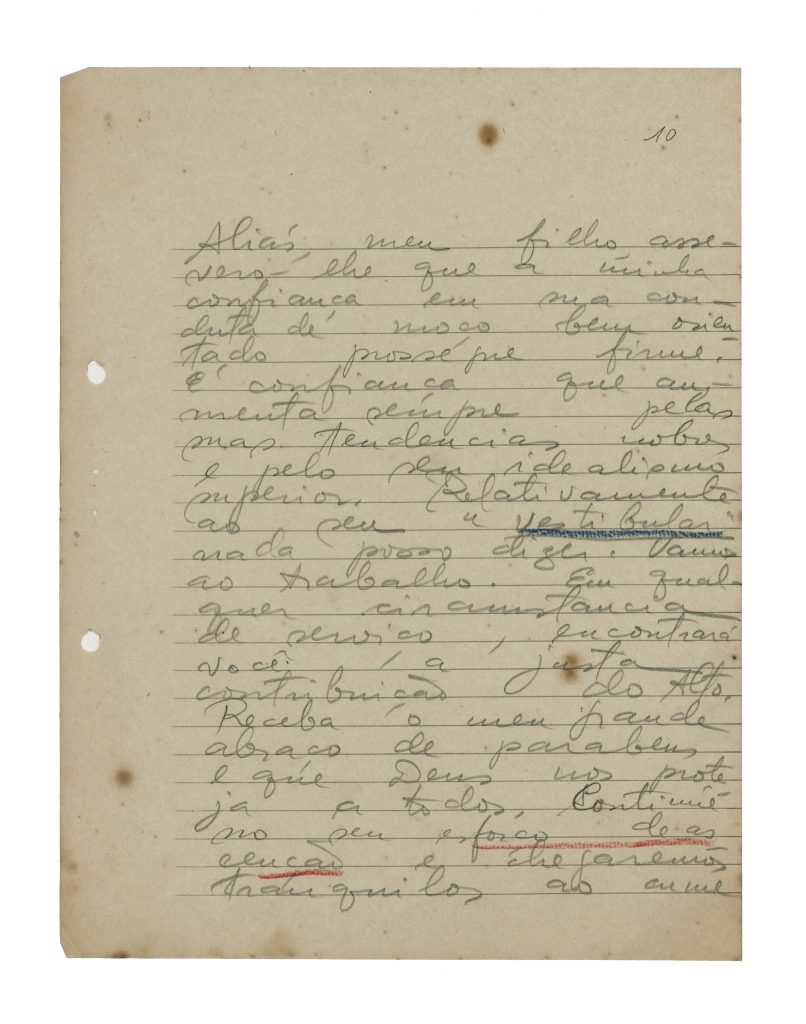 10
Aliás, meu filho asse-
vero-lhe que a minha
confiança em sua con-
duta de moço bem orien
tado prossegue firme.
É confiança que au-
menta sempre pelas
suas tendencias nobres
e pelo seu idealismo
superior. Relativamente
ao seu "vestibular"
nada posso dizer. Vamos
ao trabalho. Em qual-
quer circunstancia
de serviço, encontrará
você, a justa
contribuição do Alto.
Receba o meu grande
abraço de parabens
e que Deus nos prote
ja a todos. Continue
no seu esforço de as
cenção e chegaremos
tranquilos ao cume